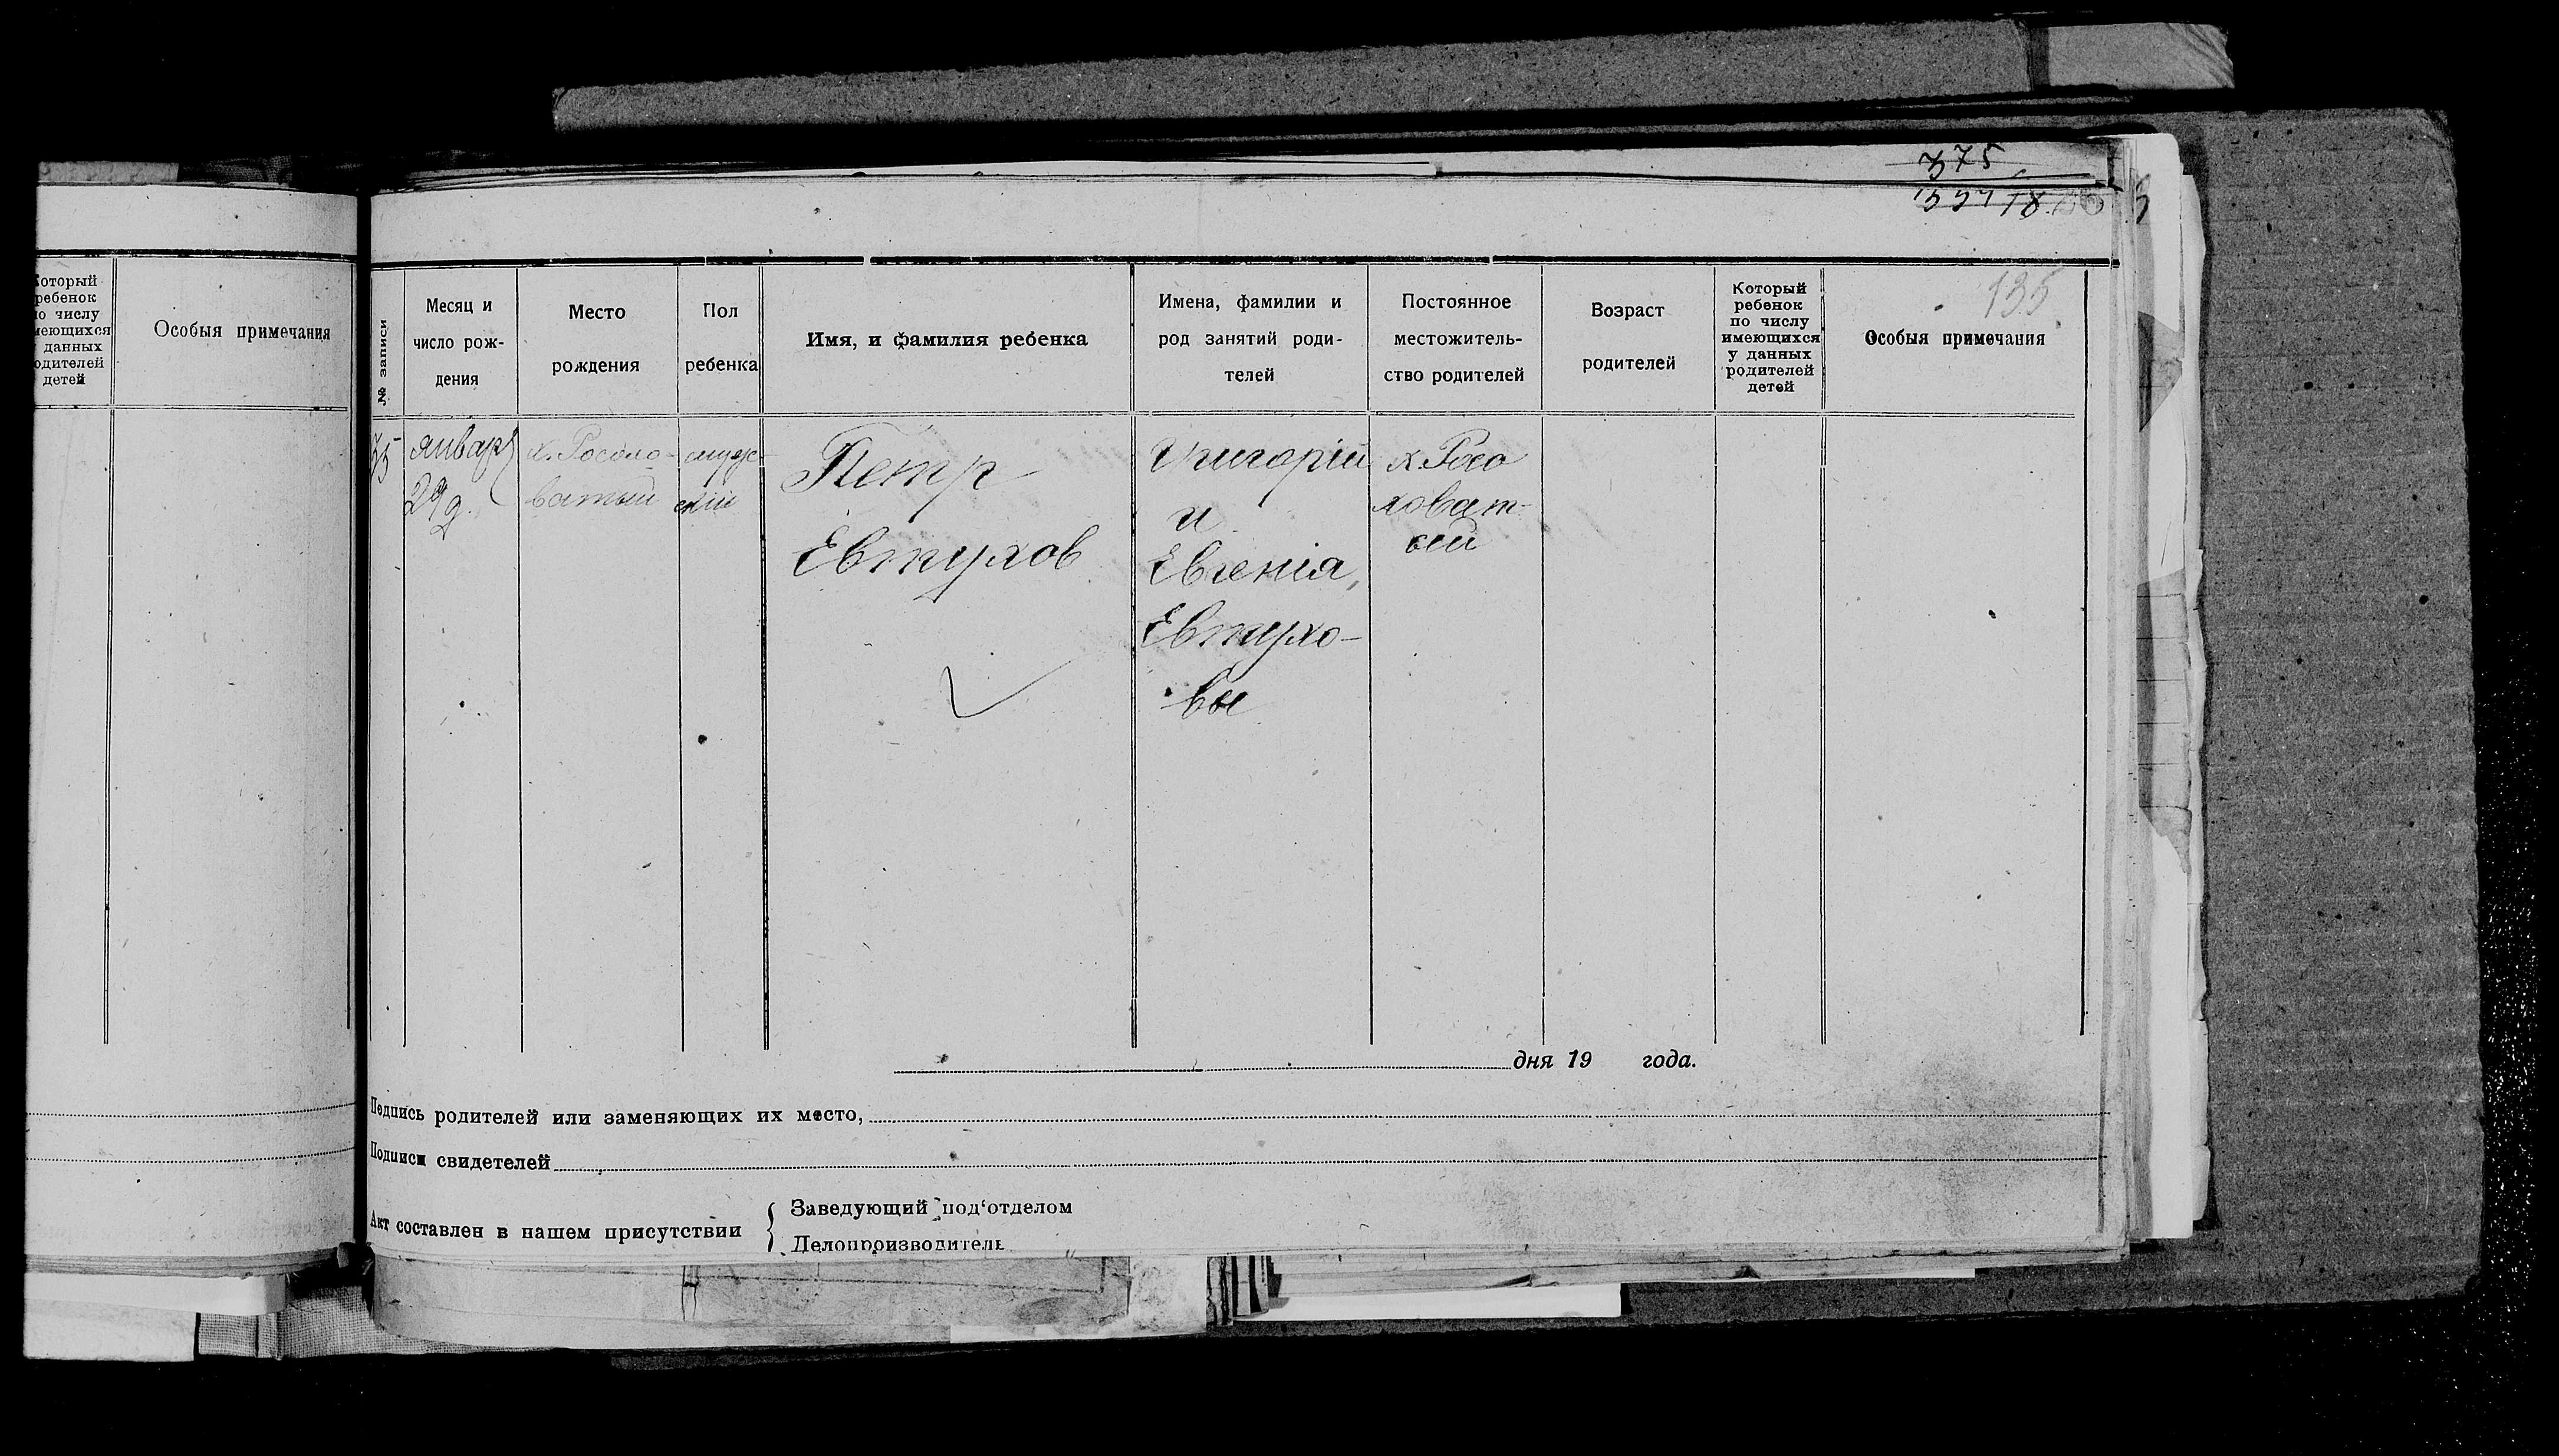 375
135
Который
ребенок
по числу
имеющихся
у данных
родителей
детей
Особыя примечания
№ записи
Месяц и
число рож-
дения
Место
рождения
Пол
ребенка
Имя, и фамилия ребенка
Имена, фамилии и
род занятий роди-
телей
Постоянное
местожитель-
ство родителей
Возраст
родителей
Который
ребенок
по числу
имеющихся
у данных
родителей
детей
Особыя примечания
35
январ
29 д.
х. Росохо-
ватый
муж-
скій
Петр
Евтухов
Григорій
и
Евгенія,
Евтухо-
вы
х. Росо
ховат-
ый
дня 19 года.
Подпись родителей или заменяющих их место,
Подписи свидетелей
Акт составлен в нашем присутствии
Заведующий под‘отделом
Делопроизводитель